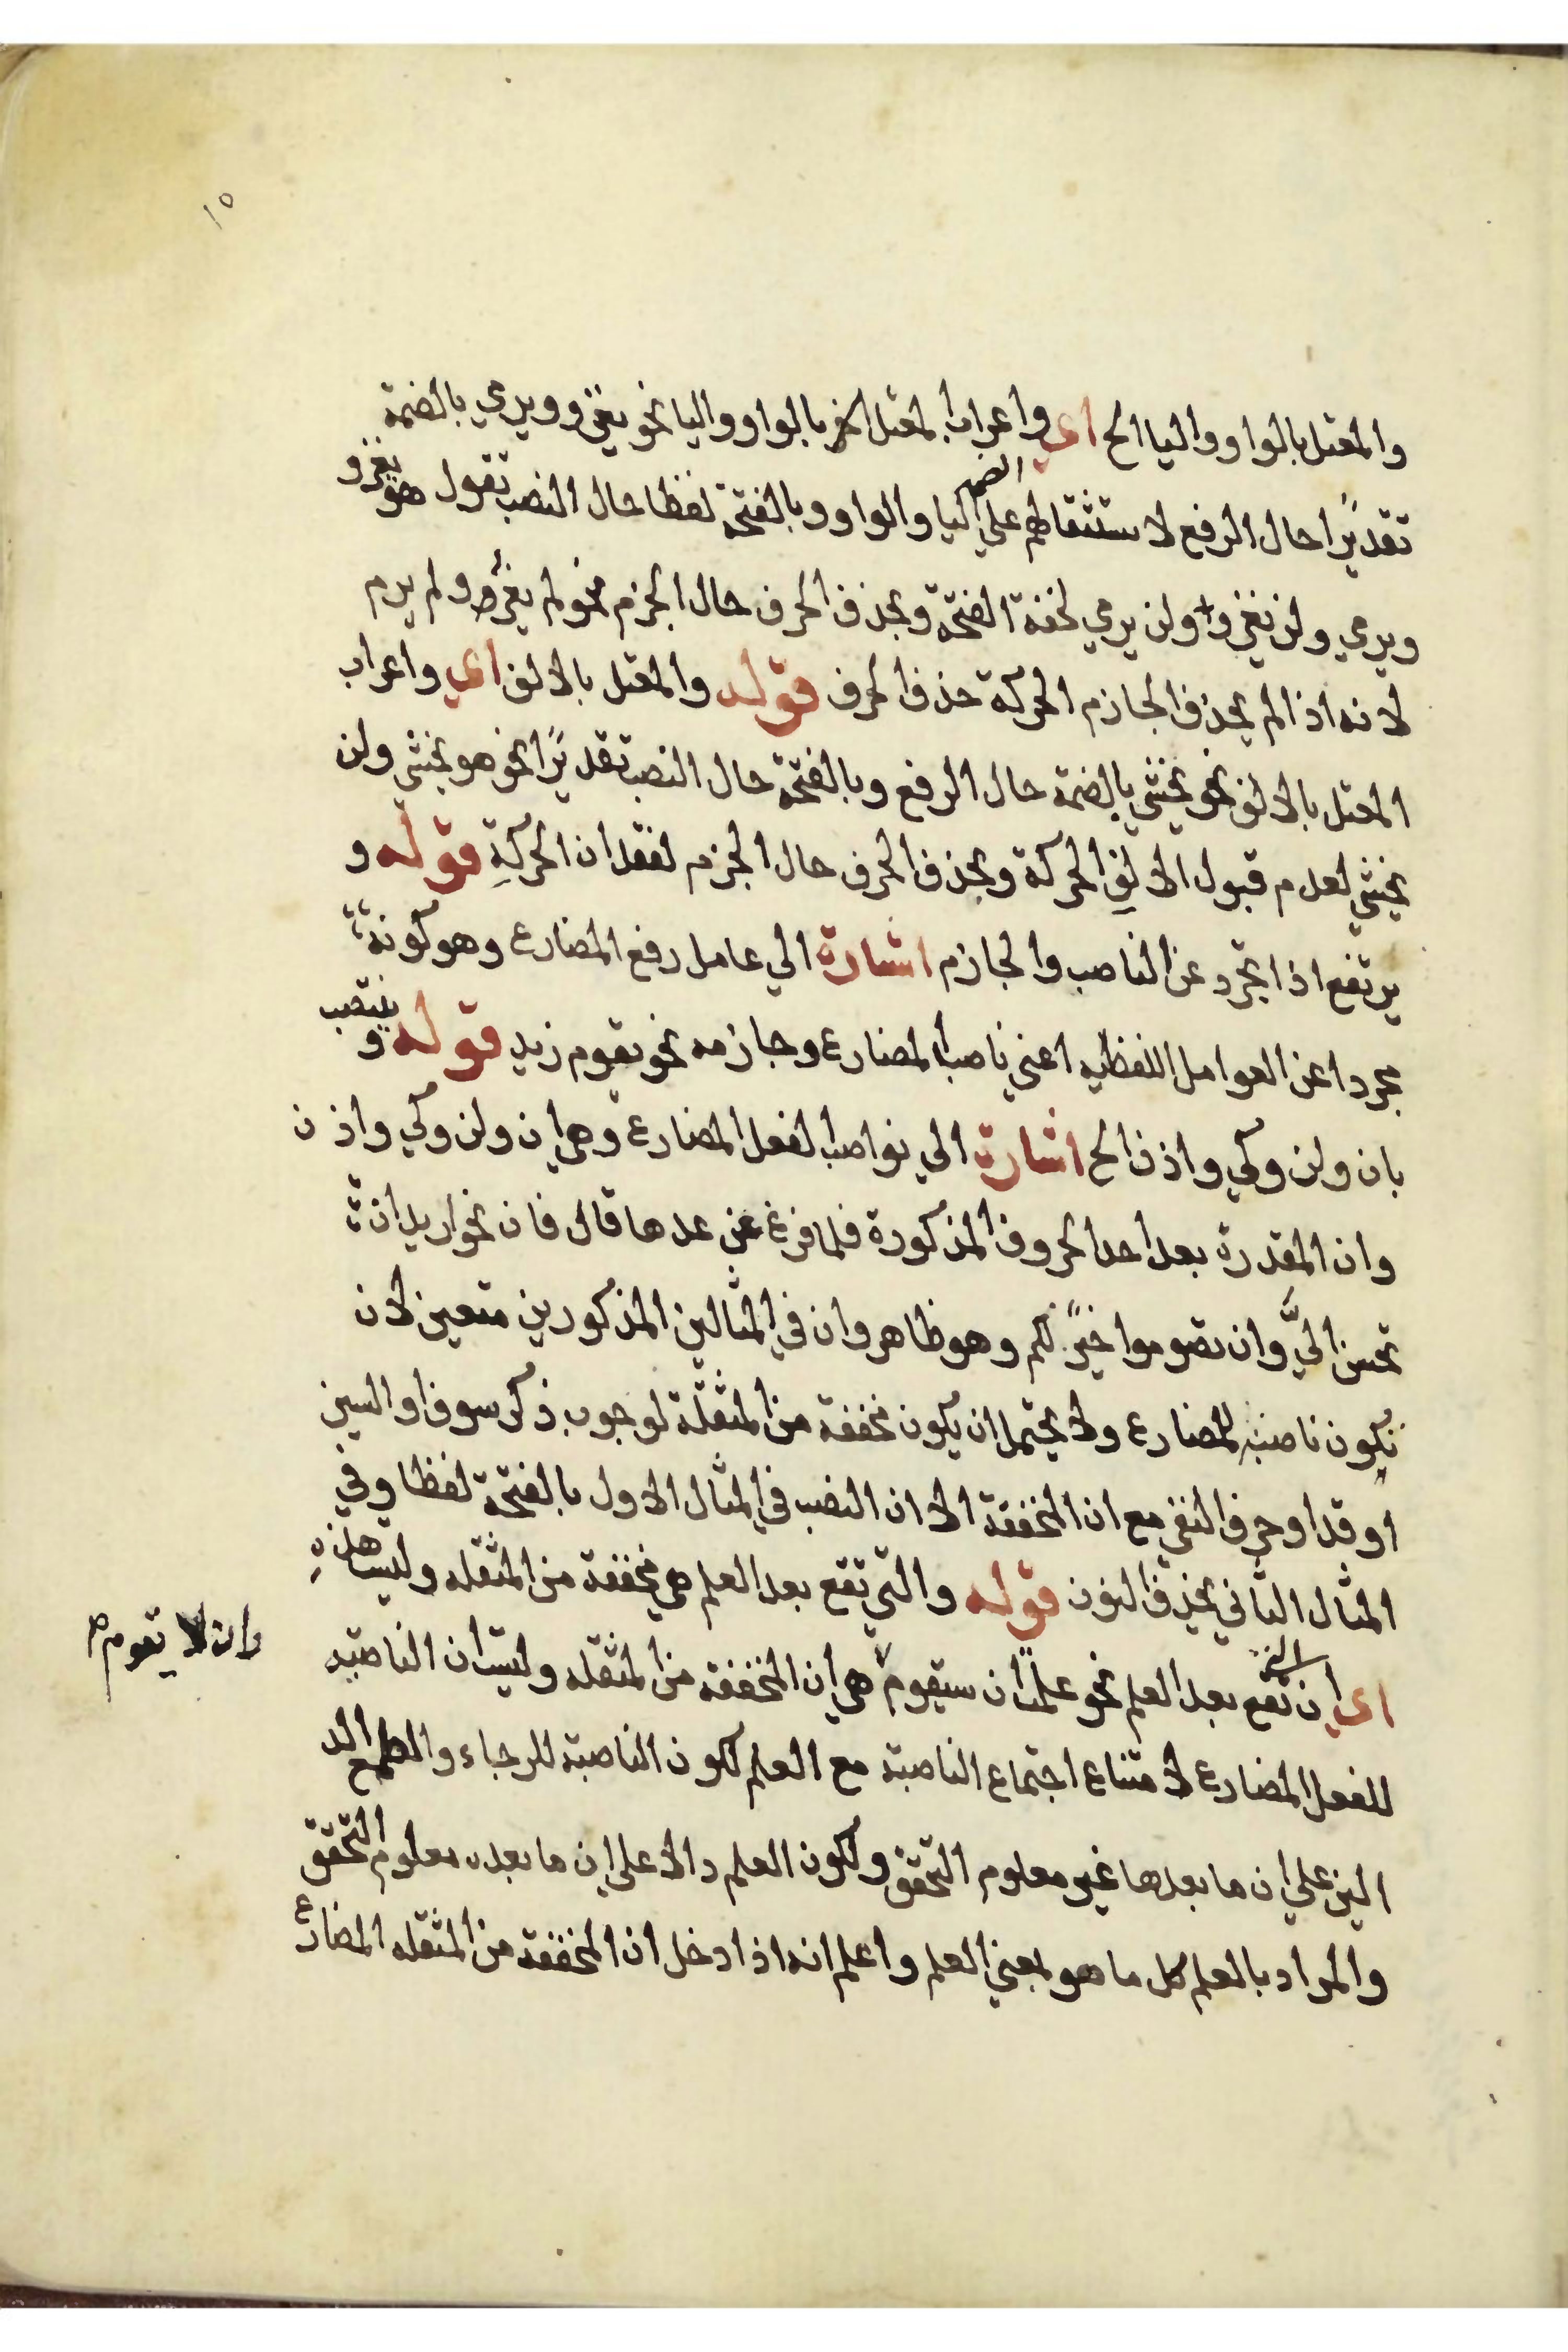 ١٥
والمعتل بالواو واليا الخ اي واعراب المعتل الاخر بالواو واليا نحو يغزو ويرمي بالضمة
تقديرًا حال الرفع لاستثقالهم الضمه علي اليا والواو وبالفتحة لفظا حال النصب تقول هو يغزو
ويرمي ولن يغزو ولن يرمي لخفة الفتحة وبحذف الحرف حال الجزم نحو لم يغز ولم يرم
لانه اذا لم يجذف الجازم الحركة حذف الحرف قوله والمعتل بالالف اي واعراب
المعتل بالالف نحو يخشي بالضمة حال الرفع وبالفتحة حال النصب تقديرًا نحو هو يخشي ولن
يخشي لعدم قبول الالف الحركة وبحذف الحرف حال الجزم لفقدان الحركة قوله و
يرتفع اذا تجرد عن الناصب والجازم اشارة الي عامل رفع المضارع وهو كونه
مجردا عن العوامل اللفظيه اعني ناصب المضارع وجازمه نحو يقوم زيد قوله وينتصب
بان ولن وكي واذن الخ اشارة الي نواصب الفعل المضارع وهي ان ولن وكي واذن
وان المقدرة بعد احد الحروف المذكورة فلما فرغ عن عدها قال فان نحو اريد ان
تحسن اليَّ وان تصوموا خيرٌ لكم وهو ظاهر وان في المثالين المذكورين متعين لان
تكون ناصبة للمضارع ولا يحتمل ان يكون مخففة من المثقلة لوجوب ذكر سوف او السين
او قد او حرف النفي مع ان المخففة الا ان النصب في المثال الاول بالفتحة لفظا وفي
المثال الثاني بحذف النون قوله والتي تقع بعد العلم هي مخففة من المثقله وليست هذه
اي ان التي تقع بعد العلم نحو علمت ان سيقوم هي ان المخففة من المثقله وليست ان الناصبه
وان لا يقوم صح
للفعل المضارع لامتناع اجتماع الناصبة مع العلم لكون الناصبة للرجاء والطمع الد
الين علي ان ما بعدها غير معلوم التحقق ولكون العلم دالا علي ان ما بعده معلوم التحقق
والمراد بالعلم كل ما هو بمعني العلم واعلم انه اذا دخل ان المخففة من المثقله المضارع